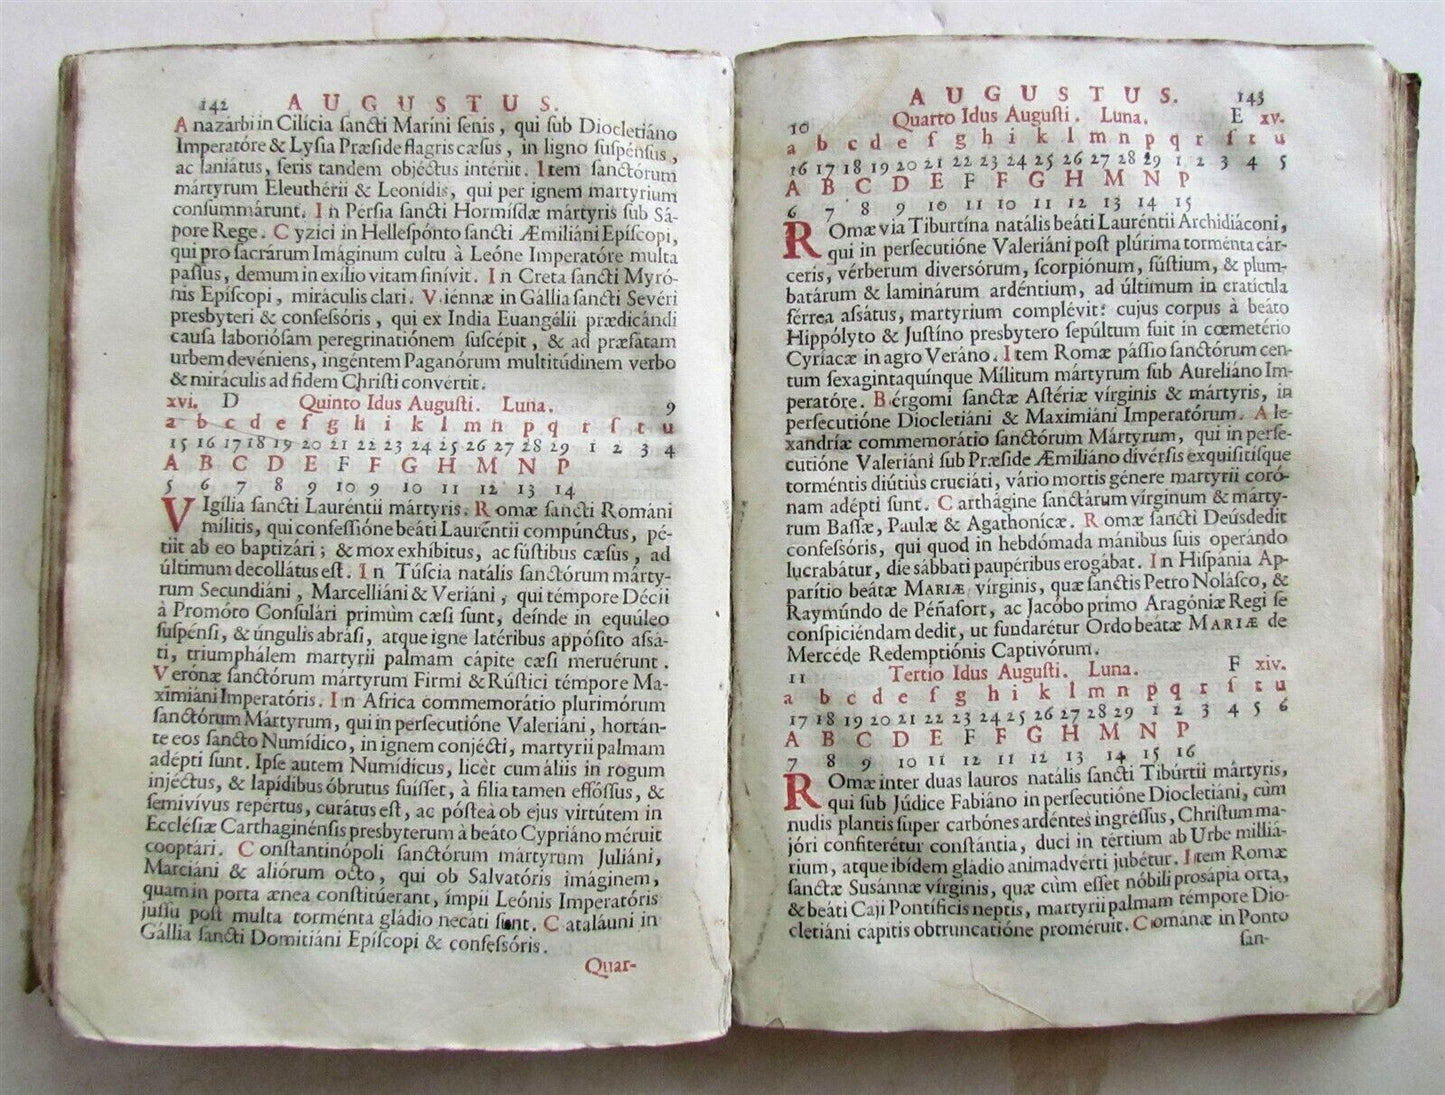 142 AUGUSTUS.
Anazárbi in Cilícia ſancti Maríni ſenis, qui ſub Diocletiáno
Imperatóre & Lyſia Præſide flagris cæſus, in ligno ſuſpénſus,
ac laniátus, feris tandem objéctus intériit. Item ſanctórum
mártyrum Eleuthérii & Leonídis, qui per ignem martyrium
conſummárunt. In Perſia ſancti Hormíſdæ mártyris ſub Sá-
pore Rege. Cyzici in Helleſpónto ſancti Æmiliáni Epíſcopi,
qui pro ſacrárum Imáginum cultu à Leóne Imperatóre multa
paſſus, demum in exílio vitam finívit. In Creta ſancti Myró-
nis Epíſcopi, miráculis clari. Viennæ in Gállia ſancti Sevéri
presbyteri & confeſsóris, qui ex India Euangélii prædicándi
cauſa laborióſam peregrinatiónem ſuſcépit, & ad præfátam
urbem devéniens, ingéntem Paganórum multitúdinem verbo
& miráculis ad fidem Chriſti convértit.
xvi. D Quinto Idus Auguſti. Luna. 9
a b c d e f g h i k l m n p q r ſ t u
15 16 17 18 19 20 21 22 23 24 25 26 27 28 29 1 2 3 4
A B C D E F F G H M N P
5 6 7 8 9 10 9 10 11 12 13 14
VIgília ſancti Lauréntii mártyris. Romæ ſancti Románi
militis, qui confeſſióne beáti Lauréntii compúnctus, pé-
tiit ab eo baptizári; & mox exhíbitus, ac fúſtibus cæſus, ad
últimum decollátus eſt. In Túſcia natális ſanctórum márty-
rum Secundiáni, Marcelliáni & Veriáni, qui témpore Décii
à Promóto Conſulári primùm cæſi ſunt, deínde in equúleo
ſuſpénſi, & úngulis abráſi, atque igne latéribus appóſito aſsá-
ti, triumphálem martyrii palmam cápite cæſi meruérunt.
Verónæ ſanctórum mártyrum Firmi & Rúſtici témpore Ma-
ximiáni Imperatóris. In Africa commemorátio plurimórum
ſanctórum Mártyrum, qui in perſecutióne Valeriáni, hortán-
te eos ſancto Numídico, in ignem conjécti, martyrii palmam
adépti ſunt. Ipſe autem Numídicus, licèt cum áliis in rogum
injéctus, & lapídibus óbrutus fuíſſet, à filia tamen effóſſus, &
ſemivívus repértus, curátus eſt, ac póſtea ob ejus virtútem in
Eccléſiæ Carthaginénſis presbyterum à beáto Cypriáno méruit
cooptári. Conſtantinópoli ſanctórum mártyrum Juliáni,
Marciáni & aliórum octo, qui ob Salvatóris imáginem,
quam in porta ænea conſtitúerant, ímpii Leónis Imperatóris
juſſu poſt multa torménta gládio necáti ſunt. Cataláuni in
Gállia ſancti Domitiáni Epíſcopi & confeſsóris.
Quar-
AUGUSTUS. 143
10 Quarto Idus Auguſti. Luna. E xv.
a b c d e f g h i k l m n p q r ſ t u
16 17 18 19 20 21 22 23 24 25 26 27 28 29 1 2 3 4 5
A B C D E F F G H M N P
6 7 8 9 10 11 10 11 12 13 14 15
ROmæ via Tiburtína natális beáti Lauréntii Archidiáconi,
qui in perſecutióne Valeriáni poſt plúrima torménta cár-
ceris, vérberum diverſórum, ſcorpiónum, fúſtium, & plum-
batárum & laminárum ardéntium, ad últimum in cratícula
férrea aſsátus, martyrium complévit: cujus corpus à beáto
Hippólyto & Juſtíno presbytero ſepúltum fuit in cœmetério
Cyríacæ in agro Veráno. Item Romæ páſſio ſanctórum cen-
tum ſexagintaquínque Mílitum mártyrum ſub Aureliáno Im-
peratóre. Bérgomi ſanctæ Aſtériæ vírginis & mártyris, in
perſecutióne Diocletiáni & Maximiáni Imperatórum. Ale-
xandríæ commemorátio ſanctórum Mártyrum, qui in perſe-
cutióne Valeriáni ſub Præſide Æmiliáno divérſis exquiſitíſque
torméntis diútiùs cruciáti, vário mortis génere martyrii coró-
nam adépti ſunt. Carthágine ſanctárum vírginum & márty-
rum Baſſæ, Paulæ & Agathonícæ. Romæ ſancti Deúsdedit
confeſsóris, qui quod in hebdómada mánibus ſuis operándo
lucrabátur, die ſábbati paupéribus erogábat. In Hiſpánia Ap-
parítio beátæ MARIÆ vírginis, quæ ſanctis Petro Noláſco, &
Raymúndo de Péñafort, ac Jacóbo primo Aragóniæ Regi ſe
conſpiciéndam dedit, ut fundarétur Ordo beátæ MARIÆ de
Mercéde Redemptiónis Captivórum.
11 Tertio Idus Auguſti. Luna. F xiv.
a b c d e f g h i k l m n p q r ſ t u
17 18 19 20 21 22 23 24 25 26 27 28 29 1 2 3 4 5 6
A B C D E F F G H M N P
7 8 9 10 11 12 11 12 13 14 15 16
ROmæ inter duas lauros natális ſancti Tibúrtii mártyris,
qui ſub Júdice Fabiáno in perſecutióne Diocletiáni, cùm
nudis plantis ſuper carbónes ardéntes ingréſſus, Chriſtum ma-
jóri confiterétur conſtántia, duci in tértium ab Urbe milliá-
rium, atque ibídem gládio animadvérti jubétur. Item Romæ
ſanctæ Suſánnæ vírginis, quæ cùm eſſet nóbili proſápia orta,
& beáti Caji Pontíficis neptis, martyrii palmam témpore Dio-
cletiáni cápitis obtruncatióne proméruit. Cománæ in Ponto
ſan-